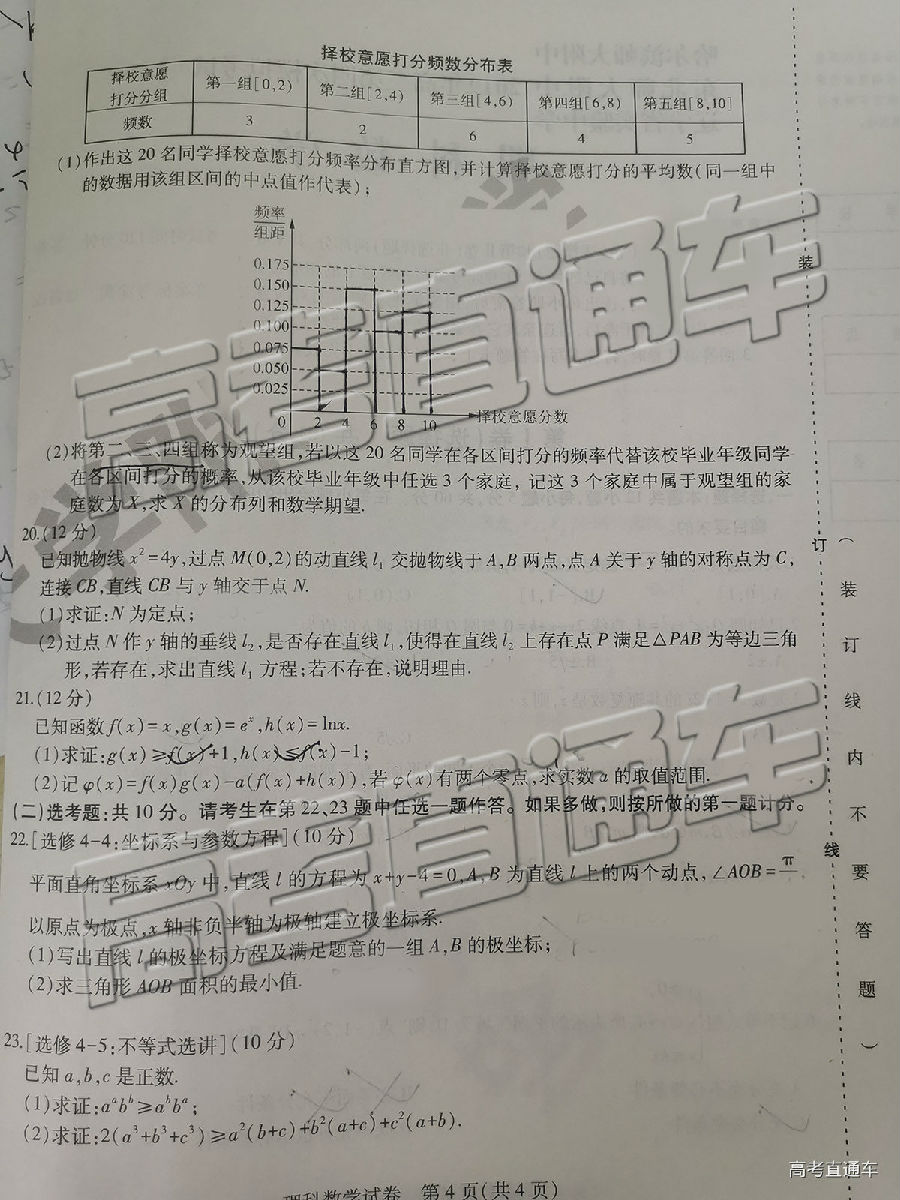 择校意愿打分频数分布表
择校意愿打分分组 第一组[0,2) 第二组[2,4) 第三组[4,6) 第四组[6,8) 第五组[8,10]
频数 3 2 6 4 5
(1)作出这20名同学择校意愿打分频率分布直方图,并计算择校意愿打分的平均数(同一组中
的数据用该组区间的中点值作代表);
频率
组距
0.175
0.150
0.125
0.100
0.075
0.050
0.025
0 2 4 6 8 10 择校意愿分数
(2)将第二、三、四组称为观望组,若以这20名同学在各区间打分的频率代替该校毕业年级同学
在各区间打分的概率,从该校毕业年级中任选3个家庭,记这3个家庭中属于观望组的家
庭数为X,求X的分布列和数学期望.
20.(12分)
已知抛物线x²=4y,过点M(0,2)的动直线l₁交抛物线于A,B两点,点A关于y轴的对称点为C,
连接CB,直线CB与y轴交于点N.
(1)求证:N为定点;
(2)过点N作y轴的垂线l₂,是否存在直线l₁,使得在直线l₂上存在点P满足△PAB为等边三角
形,若存在,求出直线l₁方程;若不存在,说明理由.
21.(12分)
已知函数f(x)=x,g(x)=eˣ,h(x)=lnx.
(1)求证:g(x)≥f(x)+1,h(x)≤f(x)-1;
(2)记φ(x)=f(x)g(x)-a(f(x)+h(x)),若φ(x)有两个零点,求实数a的取值范围.
(二)选考题:共10分。请考生在第22、23题中任选一题作答。如果多做,则按所做的第一题计分。
22.[选修4-4:坐标系与参数方程](10分)
平面直角坐标系xOy中,直线l的方程为x+y-4=0,A,B为直线l上的两个动点,∠AOB=π
以原点为极点,x轴非负半轴为极轴建立极坐标系.
(1)写出直线l的极坐标方程及满足题意的一组A,B的极坐标;
(2)求三角形AOB面积的最小值.
23.[选修4-5:不等式选讲](10分)
已知a,b,c是正数.
(1)求证:aᵃbᵇ≥aᵇbᵃ;
(2)求证:2(a³+b³+c³)≥a²(b+c)+b²(a+c)+c²(a+b).
理科数学试卷 第4页(共4页)
装
订
线
(装订线内不要答题)
高考直通车
高考直通车
高考直通车